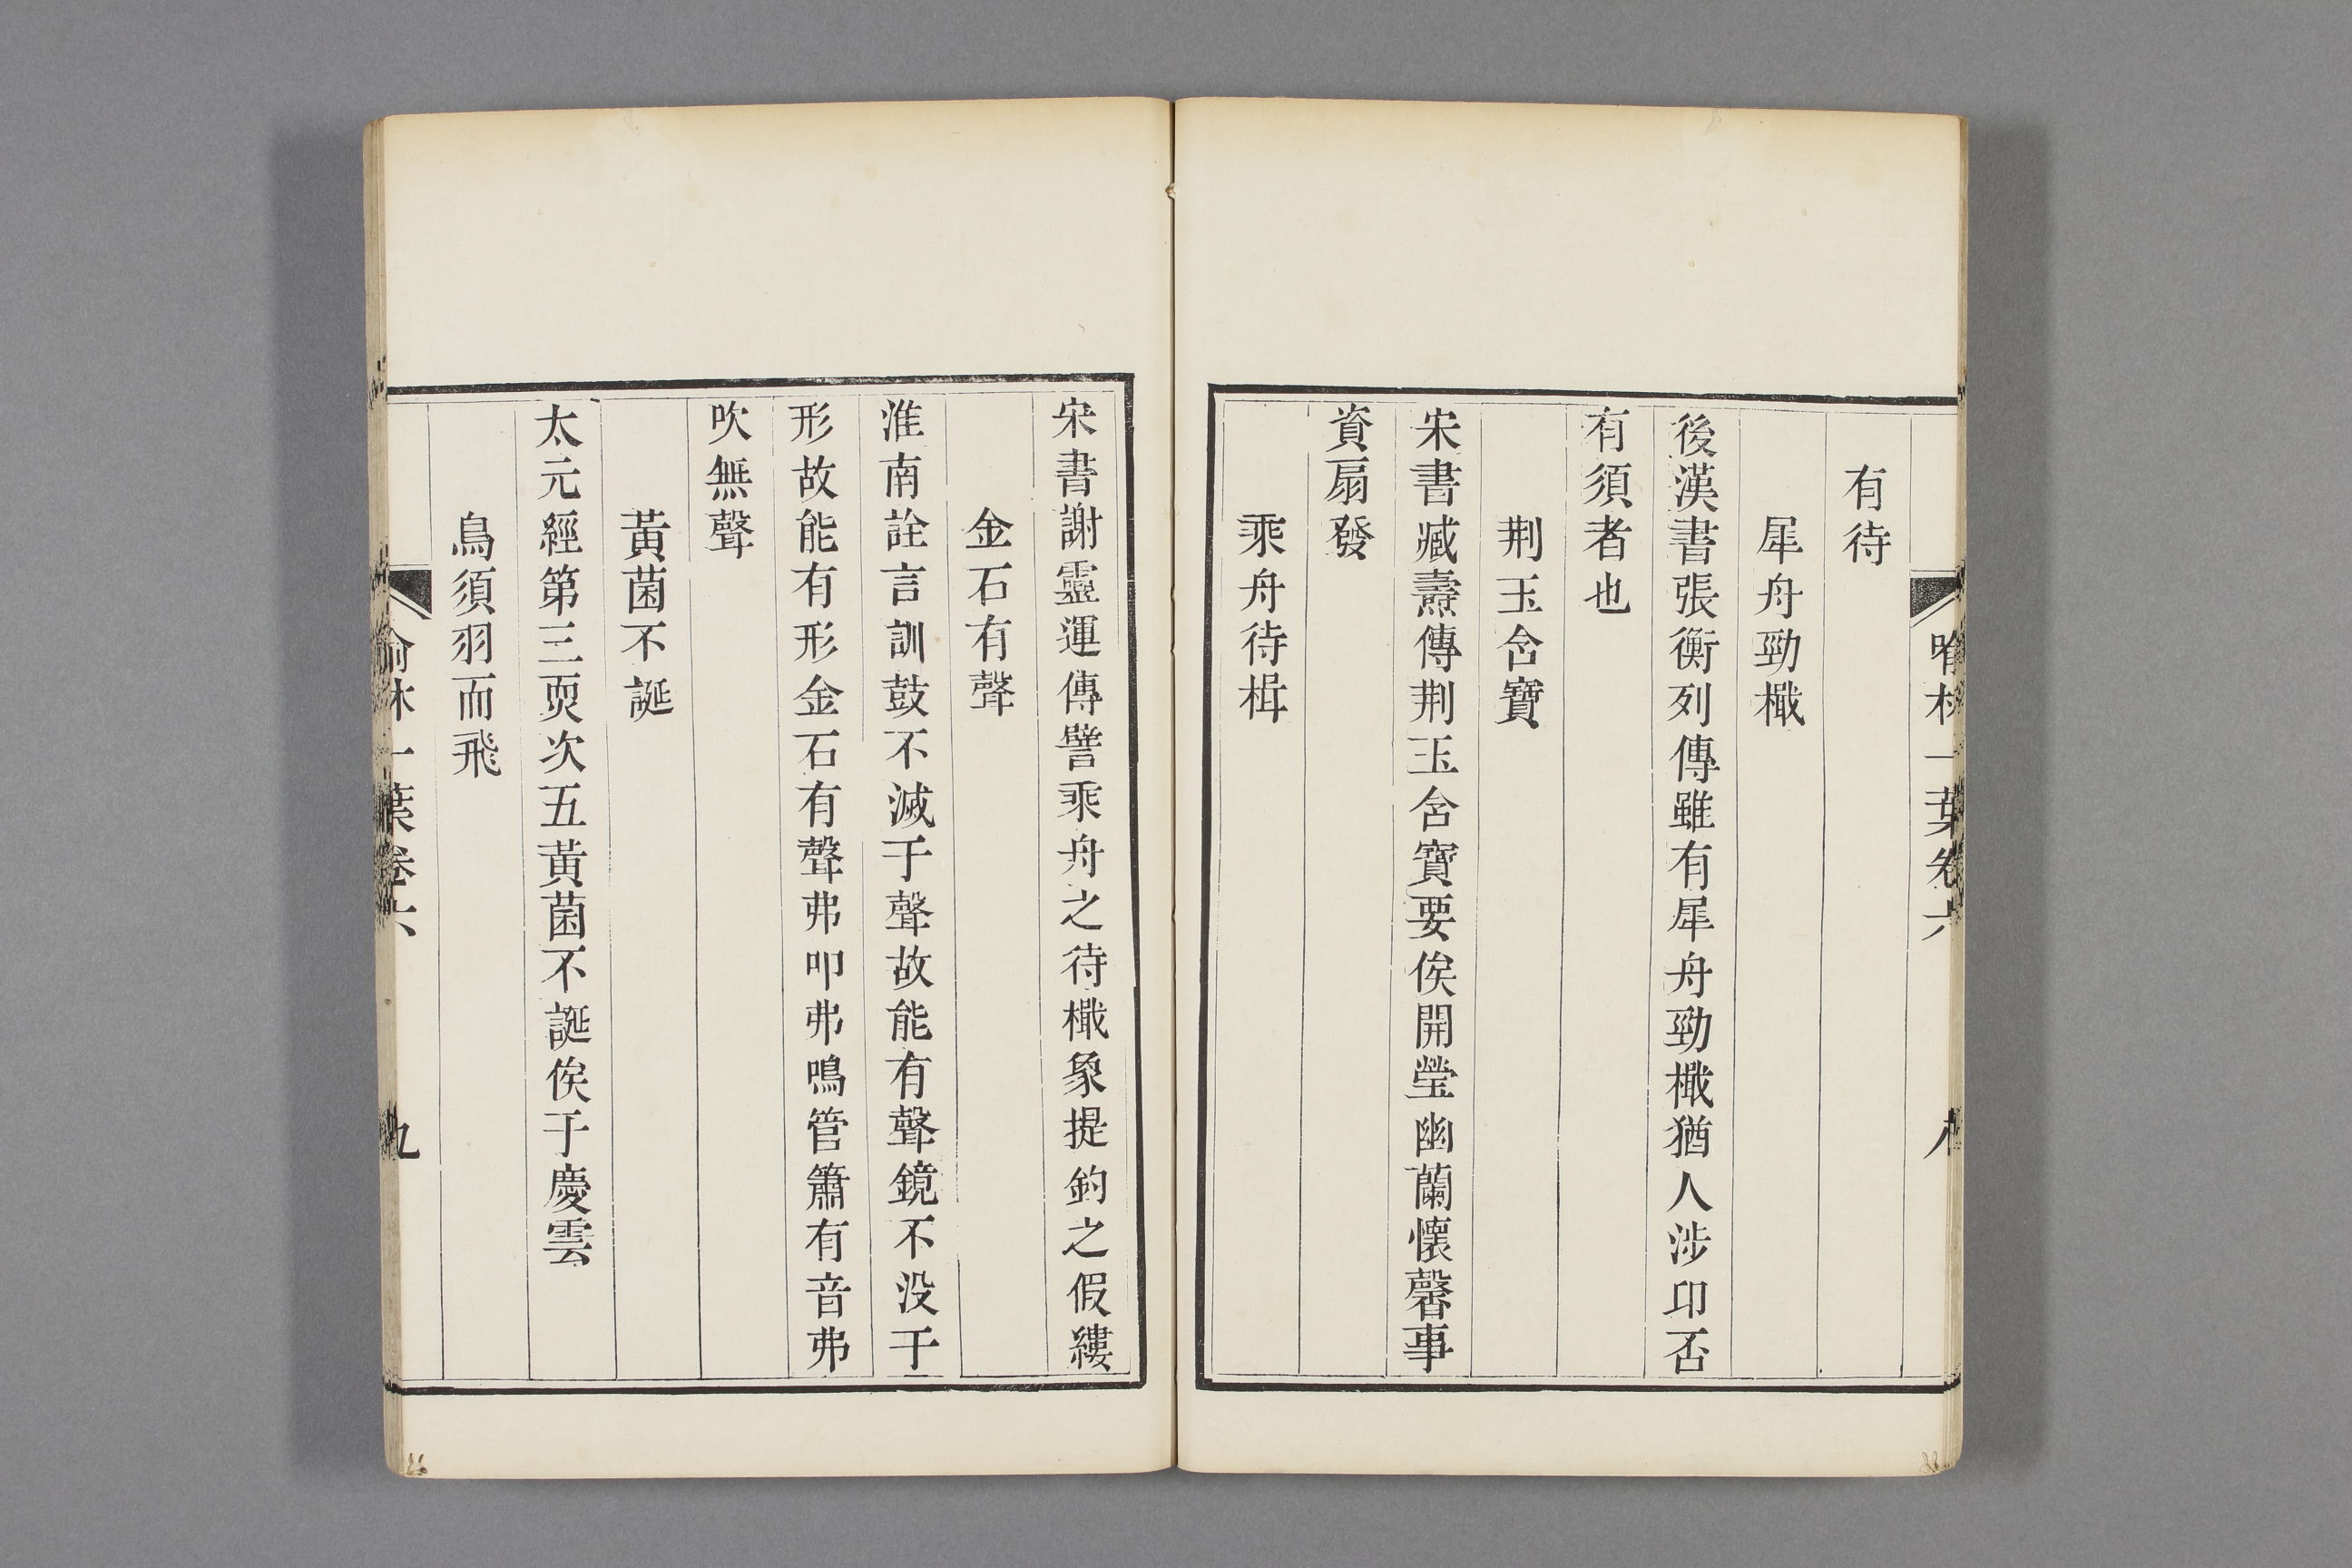 喻林一葉卷六
八
有待
犀舟勁檝
後漢書張衡列傳雖有犀舟勁檝猶人涉卬否
有須者也
荆玉含寶
宋書臧燾傳荆玉含寶要俟開瑩幽蘭懷馨事
資扇發
乘舟待楫
宋書謝靈運傳譬乘舟之待檝象提釣之假縷
金石有聲
淮南詮言訓鼓不滅于聲故能有聲鏡不没于
形故能有形金石有聲弗叩弗鳴管簫有音弗
吹無聲
黃菌不誕
太元經第三耎次五黃菌不誕俟于慶雲
鳥須羽而飛
喻林一葉卷六
九